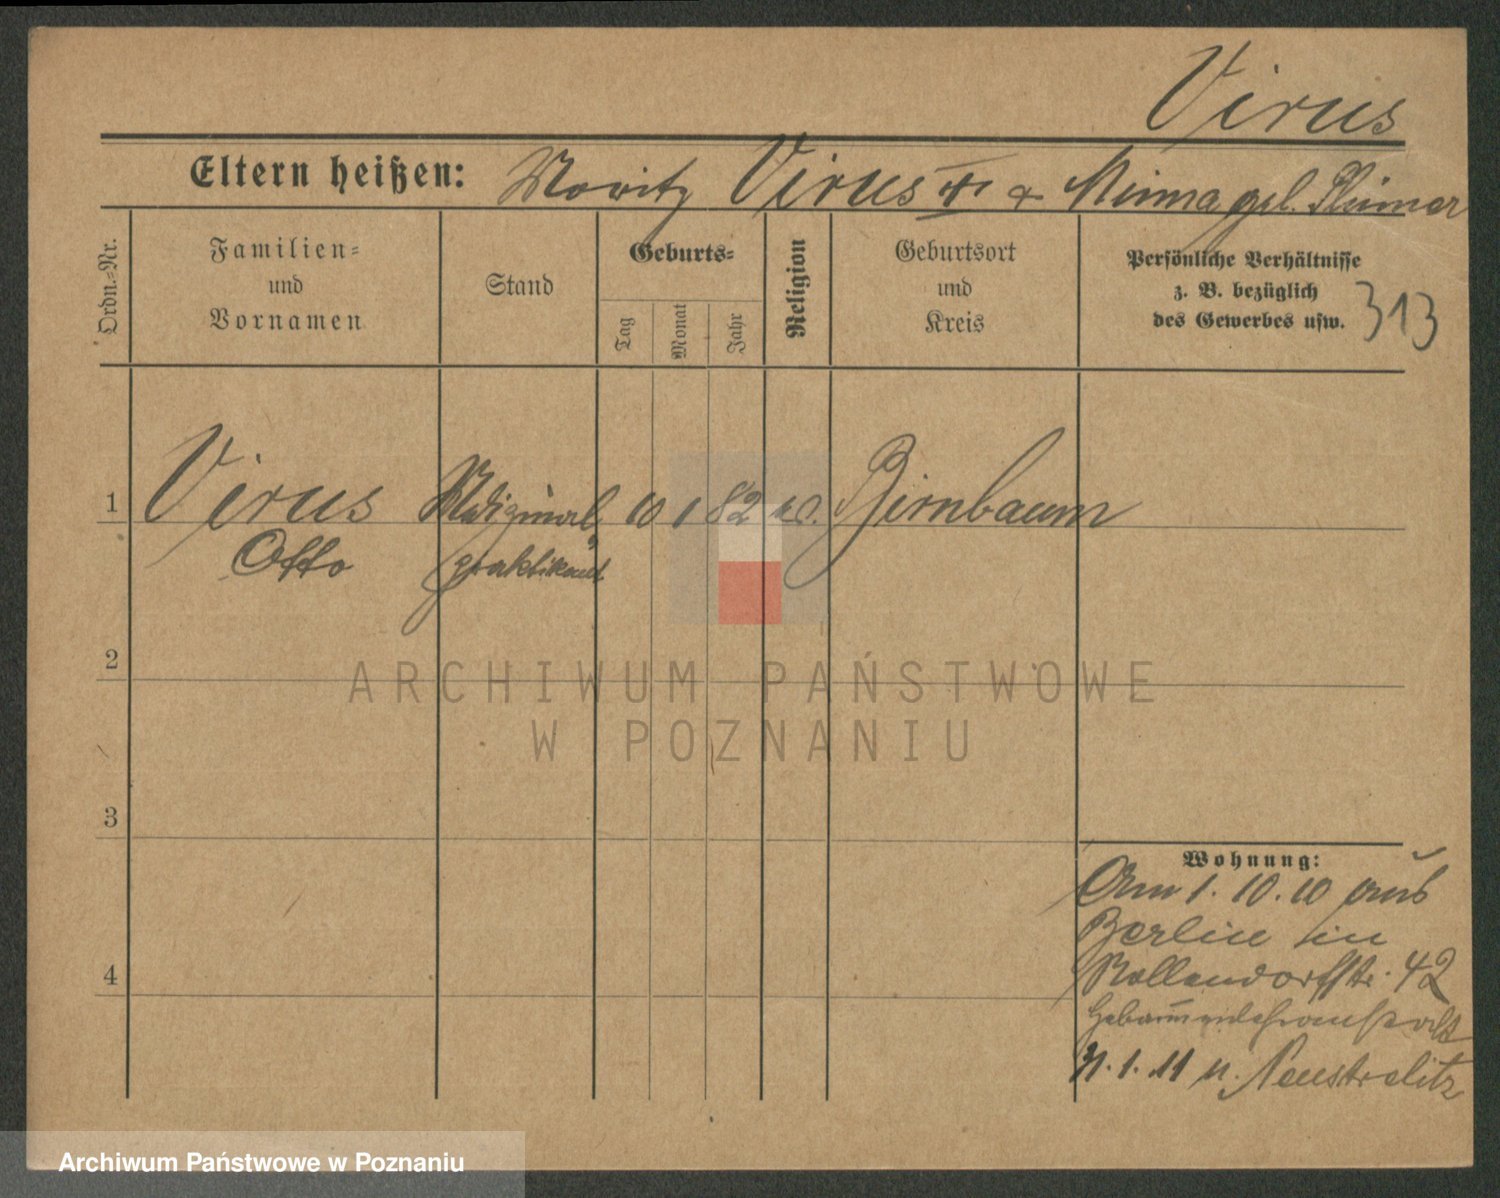 Virus
Eltern heißen: Moritz Virus & Minna geb.
Ordn.-Nr.
Familien-
und
Vornamen
Stand
Geburts-
Tag
Monat
Jahr
Religion
Geburtsort
und
Kreis
Persönliche Verhältnisse
z. B. bezüglich
des Gewerbes usw.
313
1 Virus Medizinal 10 1 82 Birnbaum
Otto praktikant
2
ARCHIWUM PAŃSTWOWE
W POZNANIU
3
4
Wohnung:
Am 1. 10. 10 aus
Berlin in
Nollendorfstr. 42
Hebammenlehranstalt
31. 1. 11 n. Neustrelitz
Archiwum Państwowe w Poznaniu